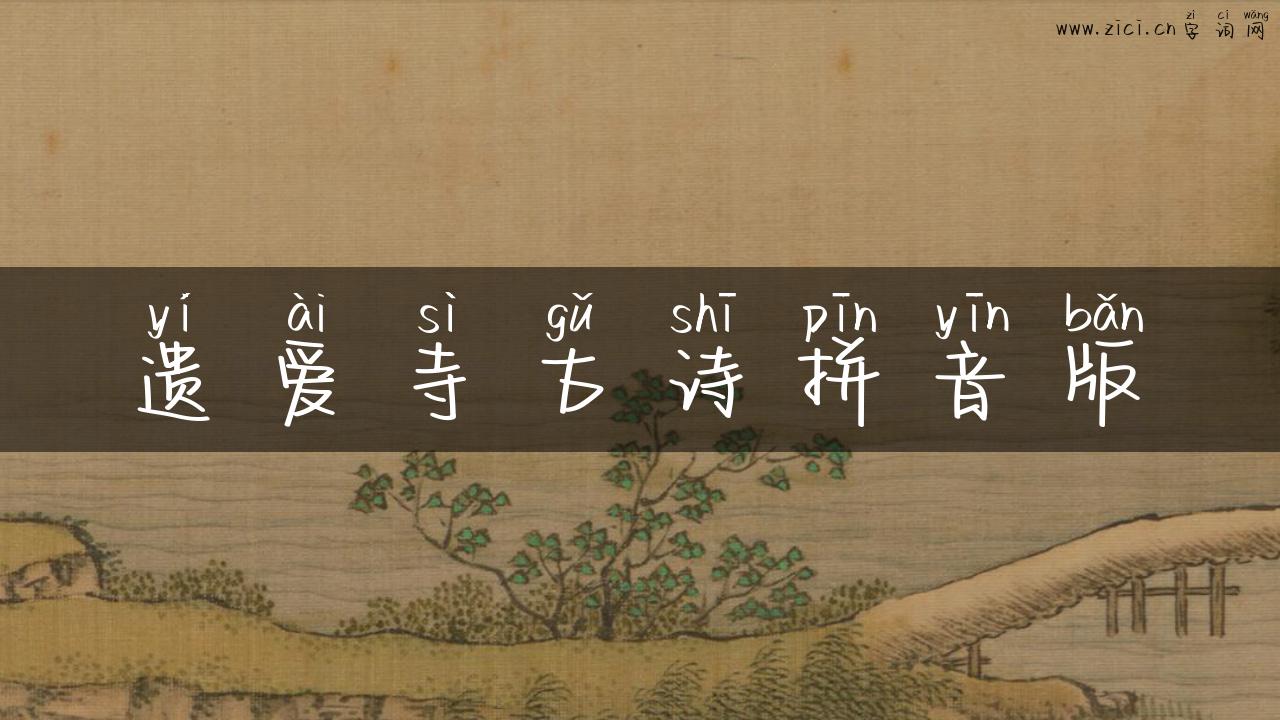 zì cí wǎng
www.zici.cn 字 词 网
yí ài sì gǔ shī pīn yīn bǎn
遗 爱 寺 古 诗 拼 音 版